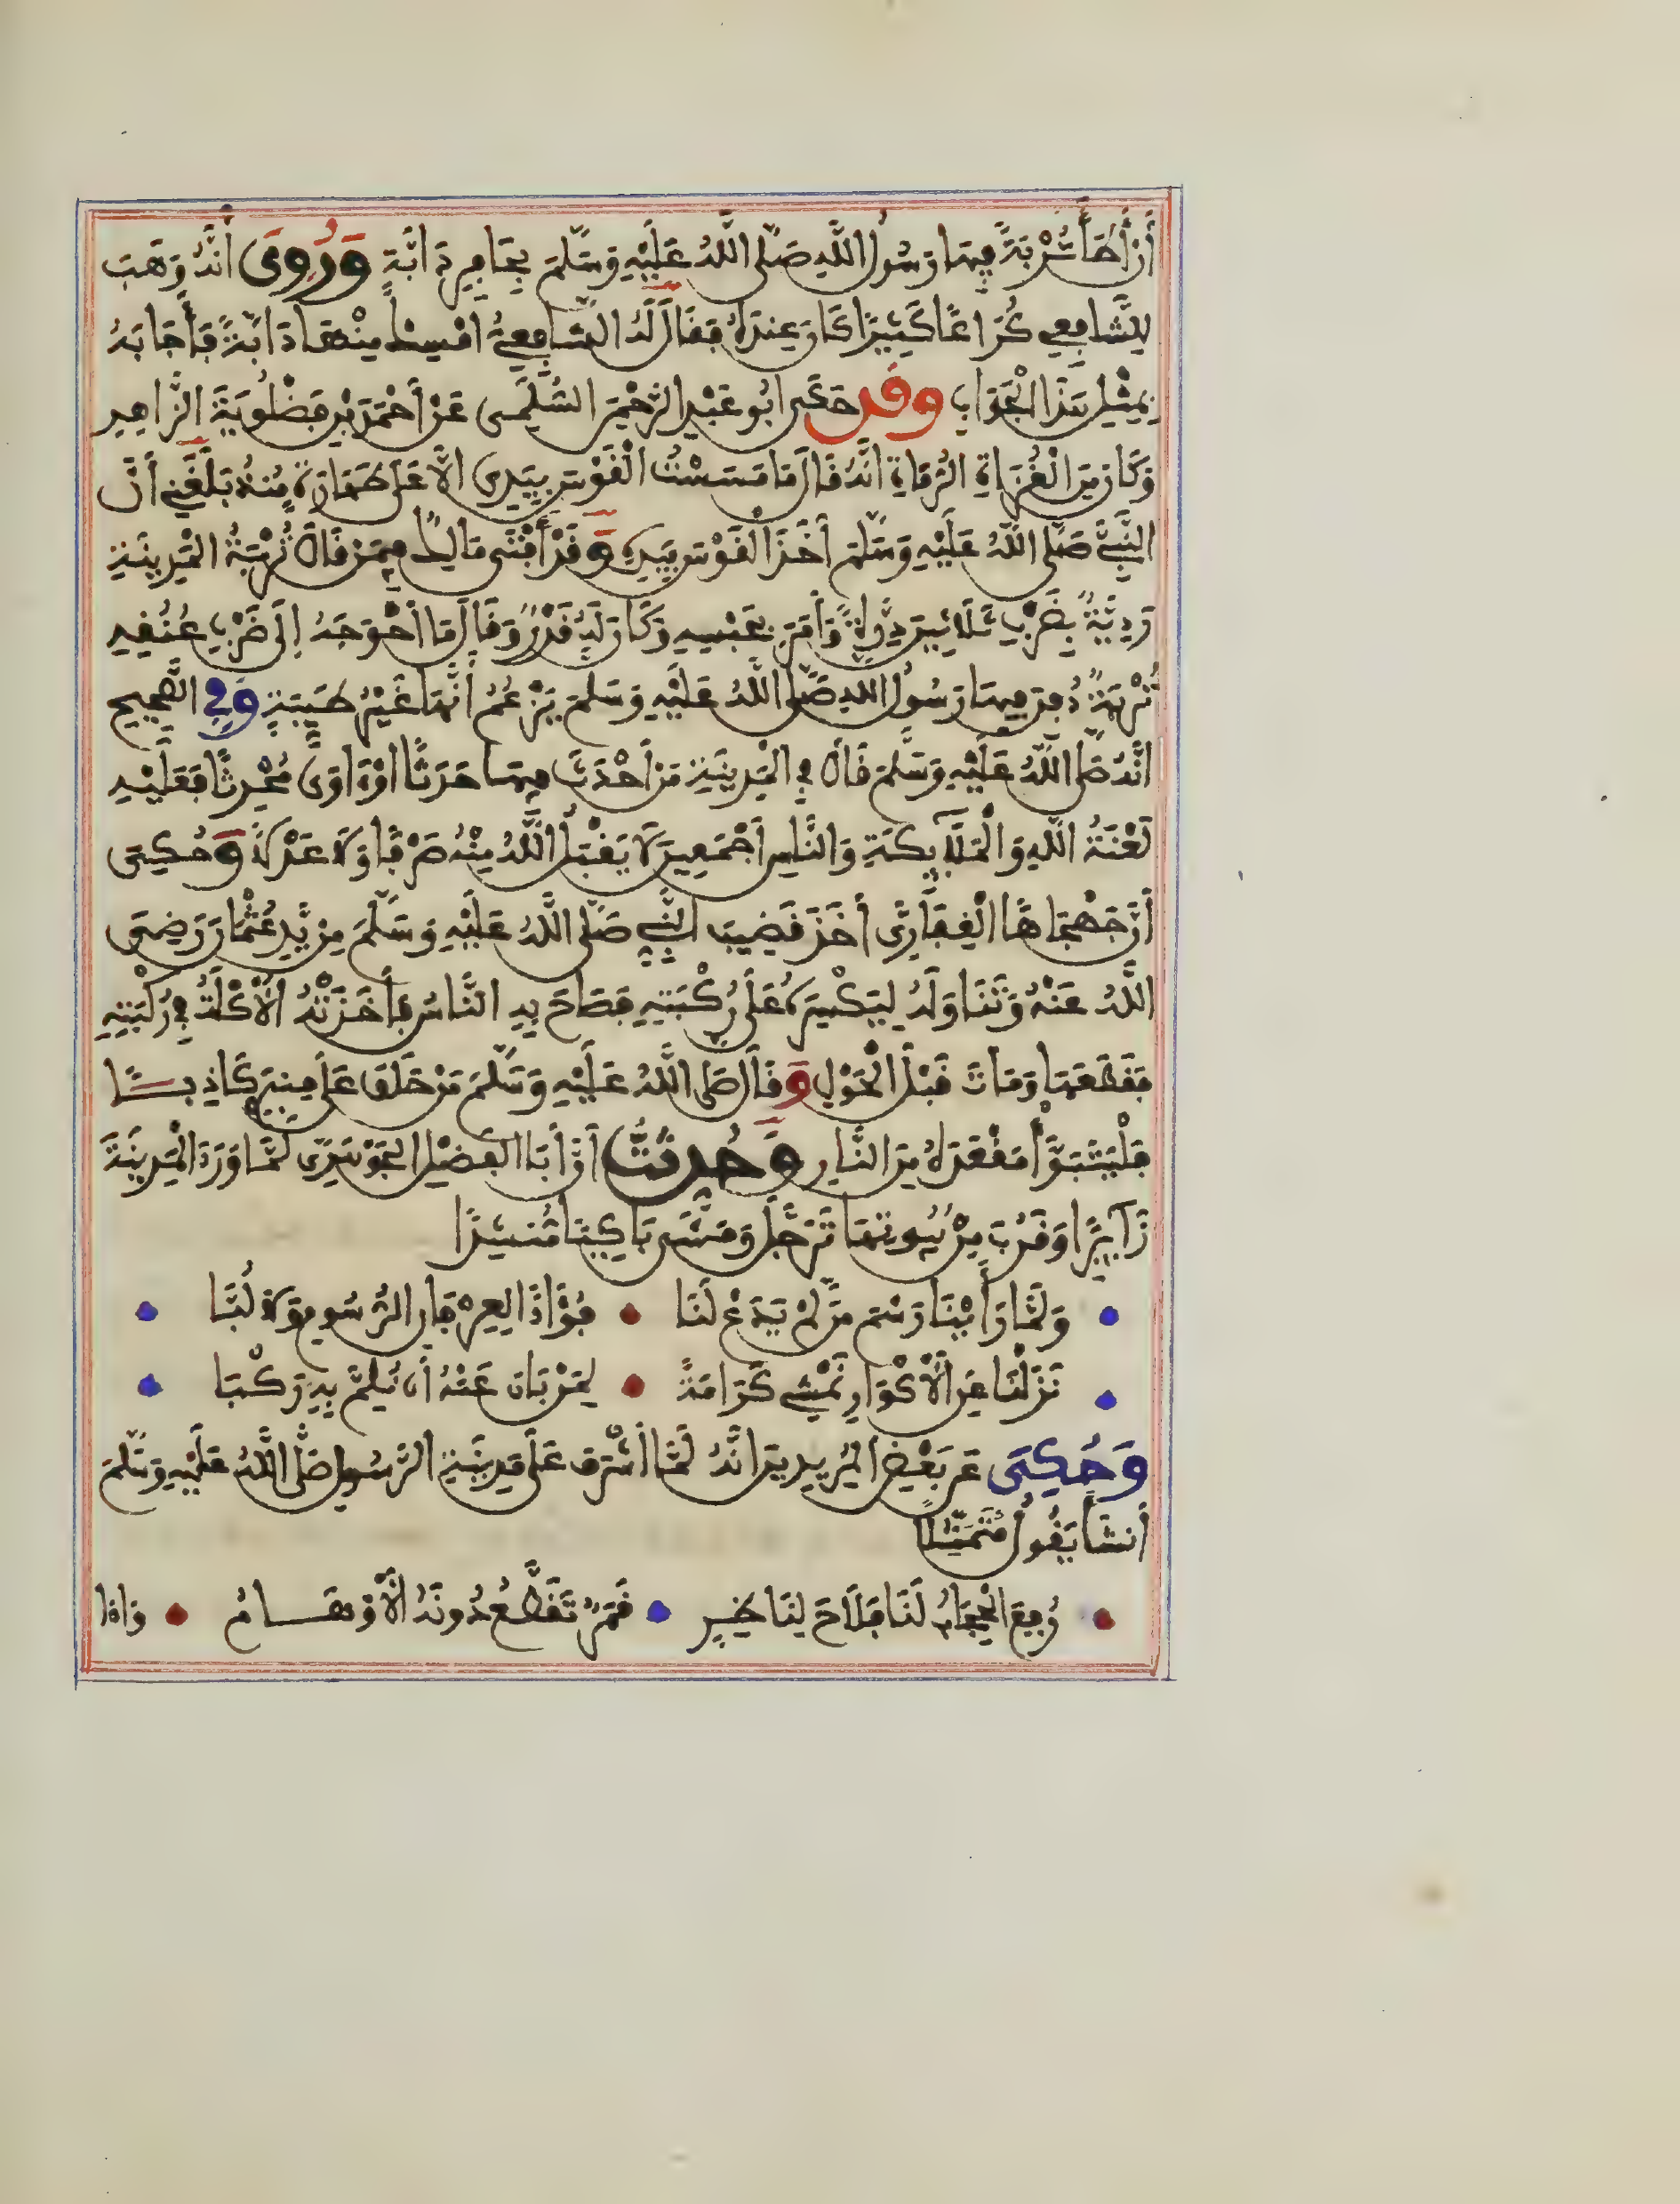 أَنْ أَطَأَ تُرْبَةً فِيهَا رَسُولُ اللَّهِ صَلَّى اللَّهُ عَلَيْهِ وَسَلَّمَ بِحَافِرِ دَابَّةٍ وَرُوِيَ أَنَّهُ وَهَبَ
لِلشَّافِعِي كُرَاعًا كَثِيرًا كَانَ عِنْدَهُ فَقَالَ لَهُ الشَّافِعِيُّ امْسِكْ مِنْهَا دَابَّةً فَأَجَابَهُ
بِمِثْلِ هَذَا الْجَوَابِ وَقَد حَكَى ابُو عَبْدِ الرَّحْمَنِ السُّلَمِي عَنْ أَحْمَدَ بْنِ فَضْلُوَيْةَ الزَّاهِدِ
وَكَانَ مِنَ الْغُزَاةِ الرُّمَاةِ انَّهُ قَالَ مَا مَسَسْتُ الْقَوْسَ بِيَدِي الَّا عَلَى طَهَارَةٍ مُنْذُ بَلَغَنِي أَنَّ
النَّبِيَّ صَلَّى اللَّهُ عَلَيْهِ وَسَلَّمَ أَخَذَ الْقَوْسَ بِيَدِهِ وَقَدْ أَفْتَى مَالِكٌ فِيمَنْ قَالَ تُرْبَةُ الْمَدِينَةِ
رَدِيَّةٌ بِضَرْبِ ثَلَاثِينَ دِرَّةً وَأَمَرَ بِحَبْسِهِ وَكَانَ لَهُ قَدْرٌ وَقَالَ مَا أَحْوَجَهُ إِلَى ضَرْبِ عُنُقِهِ
تُرْبَةٌ دُفِنَ فِيهَا رَسُولُ اللَّهِ صَلَّى اللَّهُ عَلَيْهِ وَسَلَّمَ يَزْعُمُ أَنَّهَا غَيْرُ طَيِّبَةٍ وَفِي الصَّحِيحِ
انَّهُ صَلَّى اللَّهُ عَلَيْهِ وَسَلَّمَ قَالَ فِي الْمَدِينَةِ مَنْ أَحْدَثَ فِيهَا حَدَثًا أَوْ آوَى مُحْدِثًا فَعَلَيْهِ
لَعْنَةُ اللَّهِ وَالْمَلَآئِكَةِ وَالنَّاسِ أَجْمَعِينَ لَا يَقْبَلُ اللَّهُ مِنْهُ صَرْفًا وَلَا عَدْلًا وَحُكِيَ
أَنَّ جَهْجَاهًا الْغِفَارِيَّ أَخَذَ قَضِيبَ النَّبِي صَلَّى اللَّهُ عَلَيْهِ وَسَلَّمَ مِنْ يَدِ عُثْمَانَ رَضِيَ
اللَّهُ عَنْهُ وَتَنَاوَلَهُ لِيَكْسِرَهُ عَلَى رُكْبَتِهِ فَصَاحَ بِهِ النَّاسُ فَأَخَذَتْهُ الْأَكْلَةُ فِي رُكْبَتِهِ
فَقَطَعَهَا وَمَاتَ قَبْلَ الْحَوْلِ وَقَالَ صَلَّى اللَّهُ عَلَيْهِ وَسَلَّمَ مَنْ حَلَفَ عَلَى مِنْبَرِي كَاذِبًا
فَلْيَتَبَوَّأْ مَقْعَدَهُ مِنَ النَّارِ وَحُدِّثْتُ أَنَّ أَبَا الْفَضْلِ الْجَوْهَرِيَّ لَمَّا وَرَدَ الْمَدِينَةَ
زَآئِرًا وَقَرُبَ مِنْ بُيُوتِهَا تَرَجَّلَ وَمَشَى بَاكِيًا مُنْشِدًا
وَلَمَّا رَأَيْنَا رَسْمَ مَن لَمْ يَدَعْ لَنَا • فُؤَادًا لِعِرْفَانِ الرُّسُومِ وَلَا لُبَّا
نَزَلْنَا عَنِ الْأَكْوَارِ نَمْشِي كَرَامَةً • لِمَنْ بَانَ عَنْهُ أَن نُلِمَّ بِهِ رَكْبَا
وَحُكِيَ عَن بَعْضِ الْمُرِيدِينَ انَّهُ لَمَّا أَشْرَفَ عَلَى مَدِينَةِ الرَّسُولِ صَلَّى اللَّهُ عَلَيْهِ وَسَلَّمَ
أَنشَأَ يَقُولُ مُتَمَثِّلًا
رُفِعَ الْحِجَابُ لَنَا فَلَاحَ لِنَاظِرٍ • قَمَرٌ تَقَطَّعُ دُونَهُ الْأَوْهَامُ • وَإِذَا